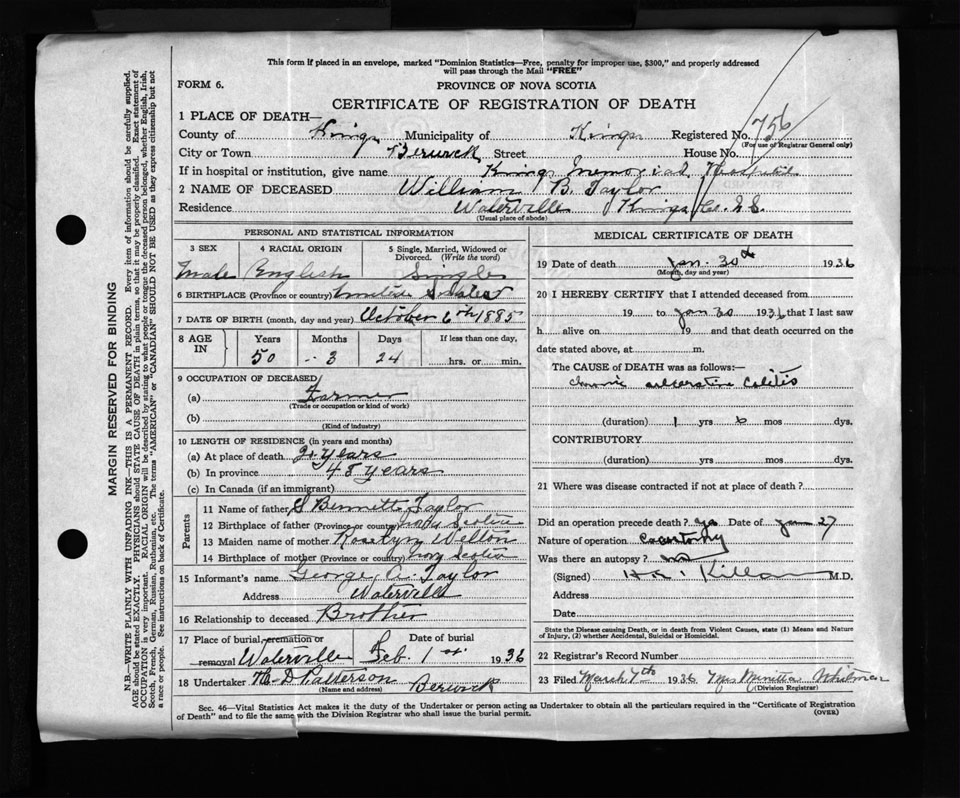 This form if placed in an envelope, marked "Dominion Statistics—Free, penalty for improper use, $300," and properly addressed
will pass through the Mail "FREE"
FORM 6.
PROVINCE OF NOVA SCOTIA
CERTIFICATE OF REGISTRATION OF DEATH
1 PLACE OF DEATH—
County of Kings Municipality of Kings Registered No. 756
(For use of Registrar General only)
City or Town Berwick Street House No.
If in hospital or institution, give name Kings Memorial Hospital
2 NAME OF DECEASED William B. Taylor
Residence Waterville Kings Co. N.S.
(Usual place of abode)
PERSONAL AND STATISTICAL INFORMATION
3 SEX 4 RACIAL ORIGIN 5 Single, Married, Widowed or Divorced. (Write the word)
Male English Single
6 BIRTHPLACE (Province or country) United States
7 DATE OF BIRTH (month, day and year) October 6th 1885
8 AGE IN Years Months Days If less than one day,
50 3 24 hrs. or min.
9 OCCUPATION OF DECEASED
(a) Farmer
(Trade or occupation or kind of work)
(b)
(Kind of industry)
10 LENGTH OF RESIDENCE (in years and months)
(a) At place of death years
(b) In province 48 years
(c) In Canada (if an immigrant)
Parents
11 Name of father S Bennett Taylor
12 Birthplace of father (Province or country) Nova Scotia
13 Maiden name of mother Roselyn Welton
14 Birthplace of mother (Province or country) Nova Scotia
15 Informant's name George A. Taylor
Address Waterville
16 Relationship to deceased Brother
17 Place of burial, cremation or removal Waterville Date of burial Feb. 1st 1936
18 Undertaker D Patterson Berwick
(Name and address)
MEDICAL CERTIFICATE OF DEATH
19 Date of death Jan. 30th 1936
(Month, day and year)
20 I HEREBY CERTIFY that I attended deceased from
19 to Jan 30 1936 that I last saw
h alive on 19 and that death occurred on the
date stated above, at m.
The CAUSE OF DEATH was as follows:—
chronic ulcerative Colitis
(duration) 1 yrs 6 mos dys.
CONTRIBUTORY
(duration) yrs mos dys.
21 Where was disease contracted if not at place of death?
Did an operation precede death? yes Date of Jan 27
Nature of operation
Was there an autopsy? no
(Signed) Killam M.D.
Address
Date
State the Disease causing Death, or in death from Violent Causes, state (1) Means and Nature of Injury, (2) whether Accidental, Suicidal or Homicidal.
22 Registrar's Record Number
23 Filed March 7th 1936 Mrs Minetta Whitman
(Division Registrar)
Sec. 46—Vital Statistics Act makes it the duty of the Undertaker or person acting as Undertaker to obtain all the particulars required in the "Certificate of Registration
of Death" and to file the same with the Division Registrar who shall issue the burial permit.
(OVER)
MARGIN RESERVED FOR BINDING
N.B.—WRITE PLAINLY WITH UNFADING INK—THIS IS A PERMANENT RECORD. Every item of information should be carefully supplied.
AGE should be stated EXACTLY. PHYSICIANS should STATE CAUSE OF DEATH in plain terms, so that it may be properly classified. Exact statement of
OCCUPATION is very important. RACIAL ORIGIN will be described by stating to what people or tongue the deceased person belonged, whether English, Irish,
Scotch, French, German, Russian, Ruthenian, etc. The terms "AMERICAN" or "CANADIAN" SHOULD NOT BE USED as they express citizenship but not
a race or people. See instructions on back of Certificate.